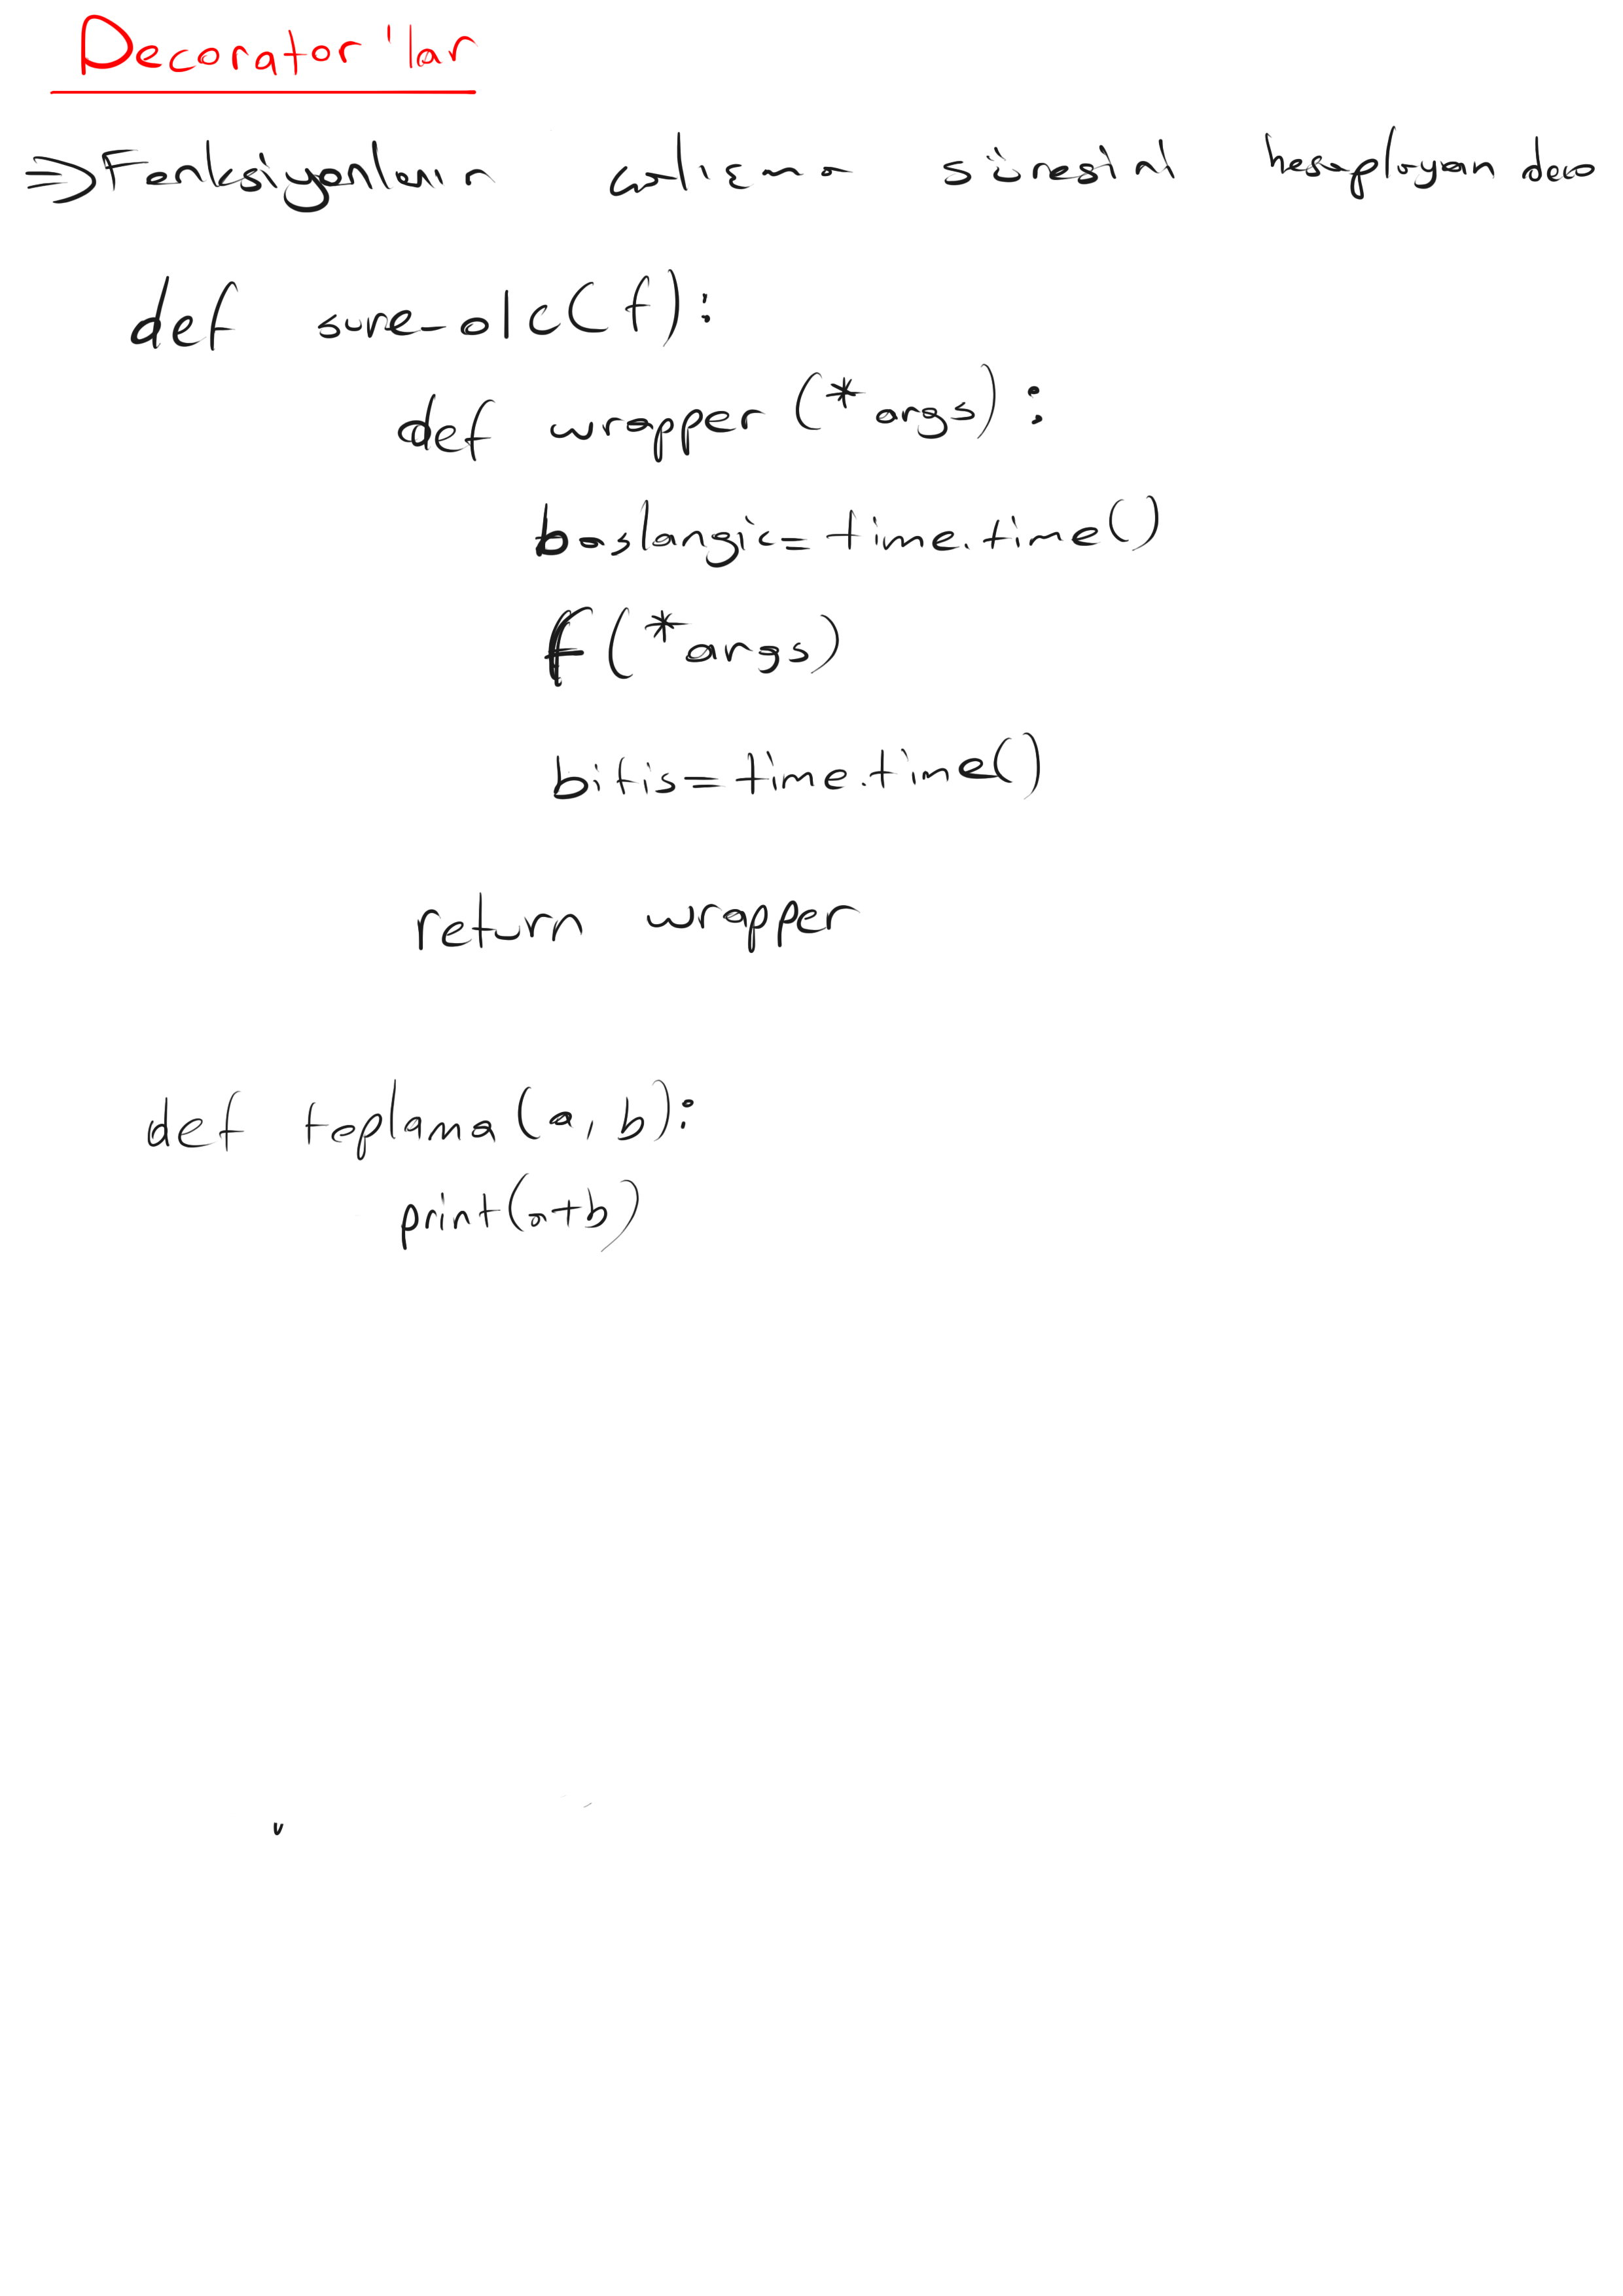 Decorator'lar
⇒ Fonksiyonların calisma süresini hesaplayan deco
def sure_olc(f):
def wrapper(*args):
baslangic=time.time()
f(*args)
bitis=time.time()
return wrapper
def toplama(a,b):
print(a+b)